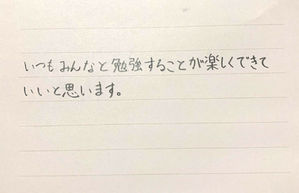 いつもみんなと勉強することが楽しくできて
いいと思います。